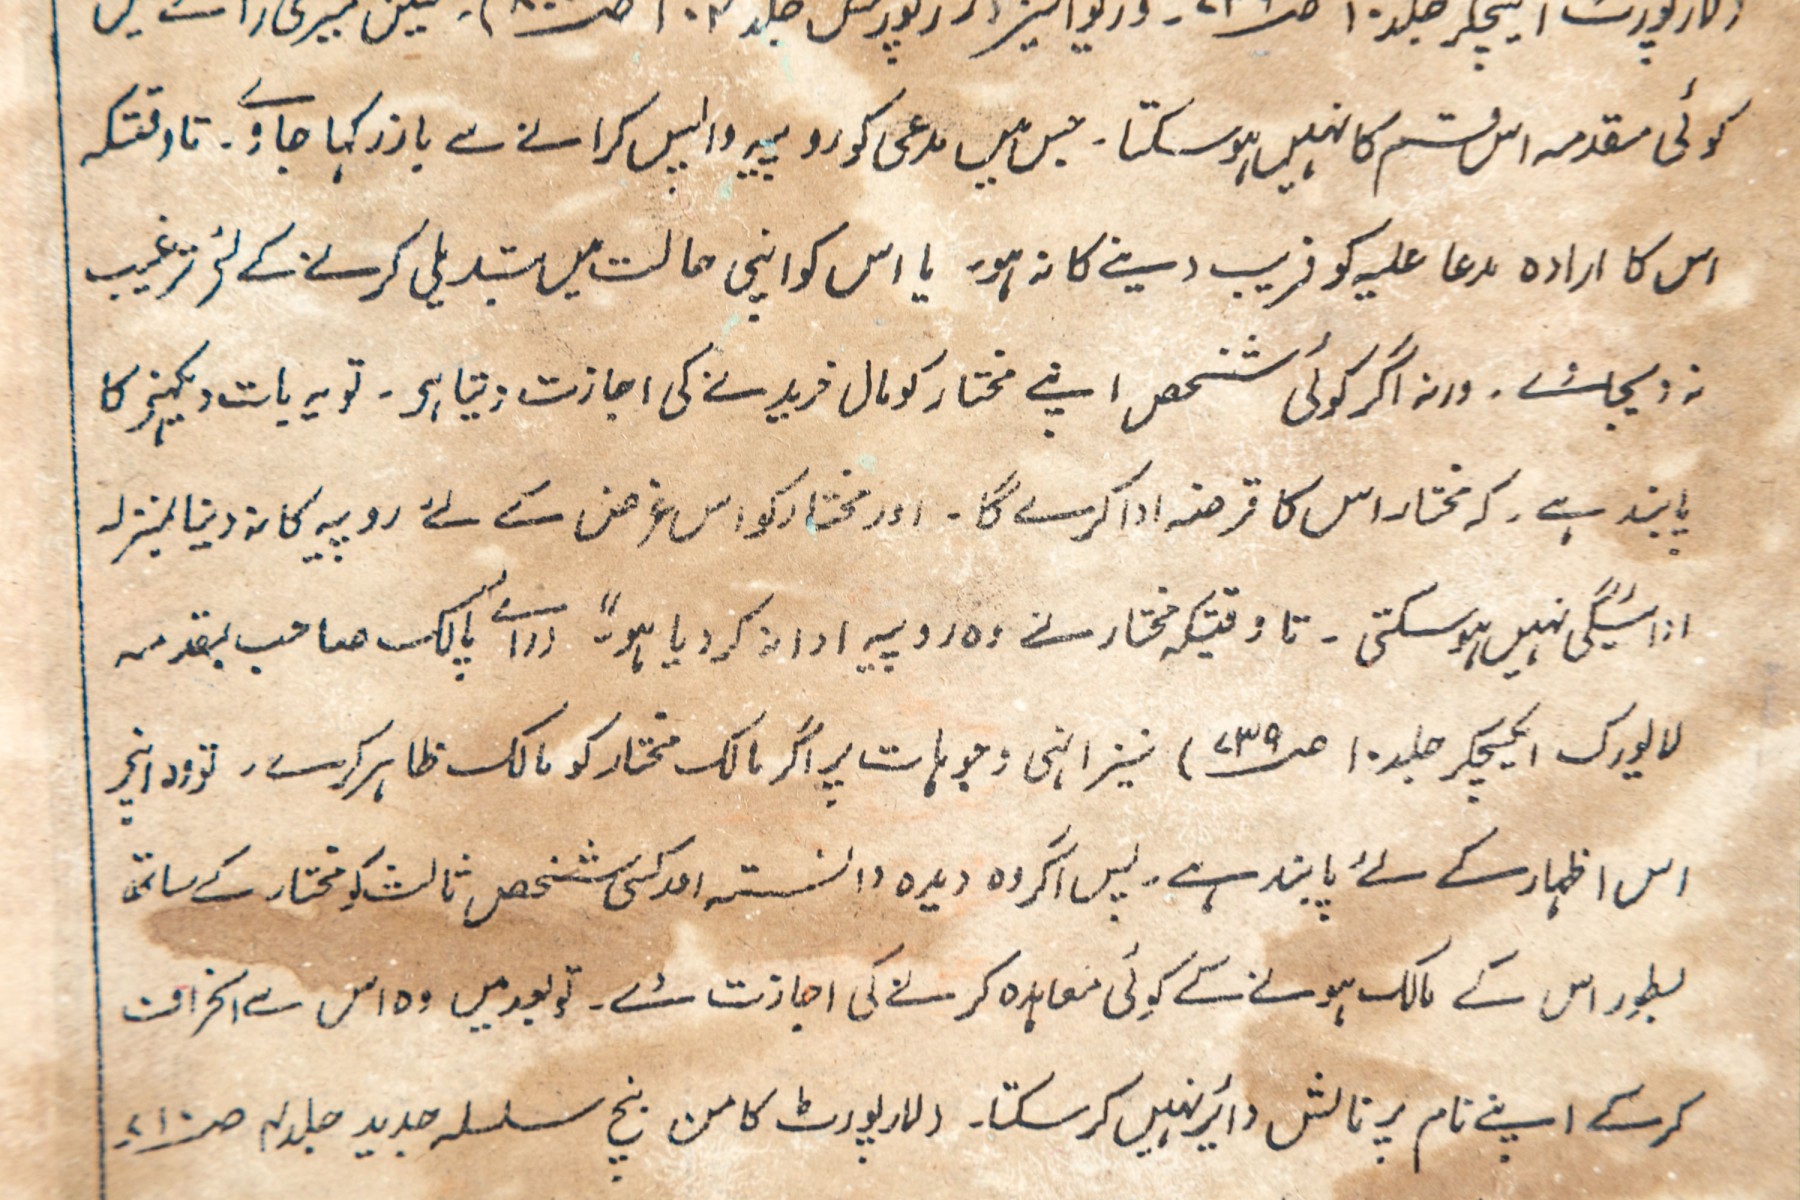 (لارپورٹ اکیسچکر جلد ۱۰ صفحہ ۲۳۹ - جلد ۱۰۴ صفحہ) - لیکن میری رائے میں
کوئی مقدمہ اس قسم کا نہیں ہوسکتا - جس میں مدعی کو روپیہ واپس کرانے سے بازرکہا جاوے - تاوقتیکہ
اس کا ارادہ مدعا علیہ کو فریب دینے کا نہ ہو - یا اس کو اپنی حالت میں تبدیلی کرنے کے لئے ترغیب
نہ دیجائے - ورنہ اگر کوئی شخص اپنے مختار کو مال خریدنے کی اجازت دیتا ہی - تو یہ بات دیکہنے کا
پابند ہے - کہ مختار اس کا قرضہ ادا کرے گا - اور مختار کو اس غرض کے لئے روپیہ کا نہ دینا بمنزلہ
ادائیگی نہیں ہوسکتی - تا وقتیکہ مختار نے وہ روپیہ ادا نہ کردیا ہو" (رائے پالک صاحب بمقدمہ
لاپورٹ اکیسچکر جلد ۱۰ صفحہ ۲۳۹) نیز انہی وجوہات پر اگر مالک مختار کو مالک ظاہر کرے - تو وہ اپنے
اس اظہار کے لئے پابند ہے - پس اگر وہ دیدہ دانستہ اور کسی شخص ثالث کو مختار کے ساتھ
بطور اس کے مالک ہونے کے کوئی معاہدہ کرنے کی اجازت دے - تو بعد میں وہ اس سے انحراف
کرکے اپنے نام پر نالش دائر نہیں کرسکتا - (لارپورٹ کامن بنچ سلسلہ جدید جلد صفحہ ۲۱۰